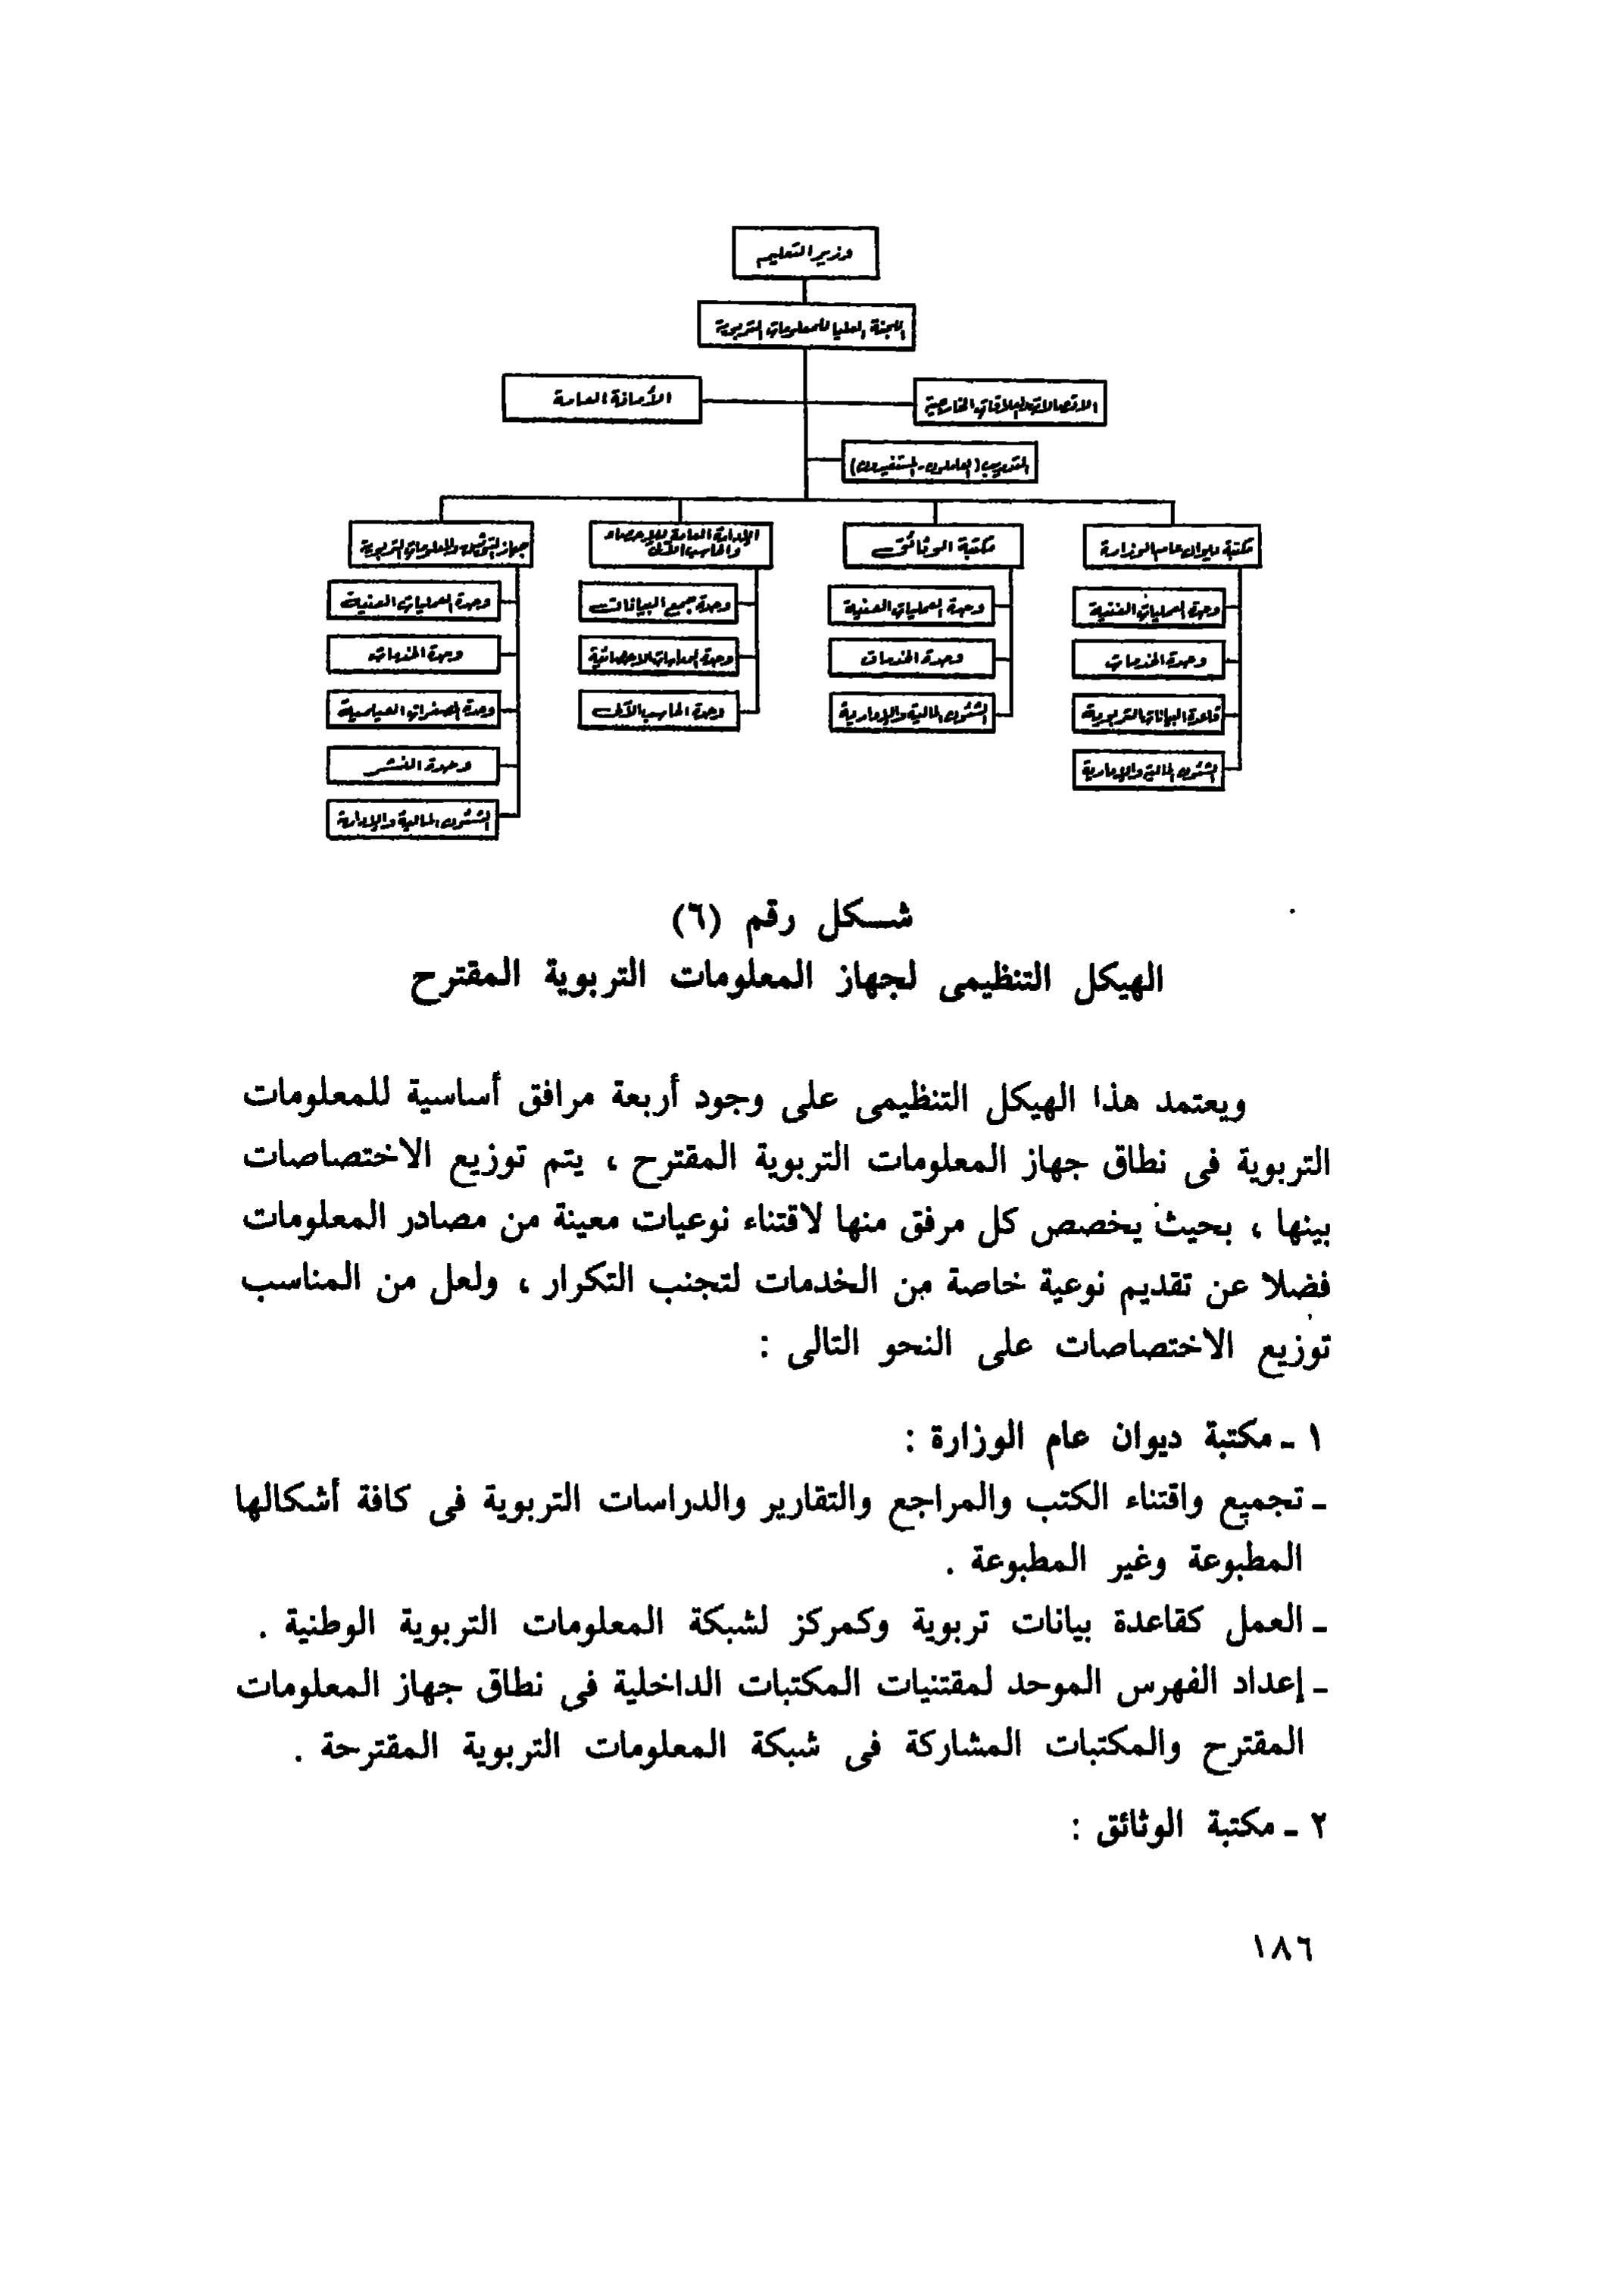 وزير التعليم
اللجنة العليا للمعلومات التربوية
الاتصالات والعلاقات الخارجية
الأمانة العامة
التدريب (العاملون - المستفيدون)
مكتبة ديوان عام الوزارة
مكتبة الوثائق
الإدارة العامة للإحصاء
والحاسب الآلى
جهاز التوثيق والمعلومات التربوية
وحدة العمليات الفنية
وحدة الخدمات
قاعدة البيانات التربوية
الشئون المالية والإدارية
وحدة العمليات الفنية
وحدة الخدمات
الشئون المالية والإدارية
وحدة جمع البيانات
وحدة العمليات الاحصائية
وحدة الحاسب الآلى
وحدة العمليات الفنية
وحدة الخدمات
وحدة المصغرات الفيلمية
وحدة النشر
الشئون المالية والإدارة
شكل رقم (٦)
الهيكل التنظيمى لجهاز المعلومات التربوية المقترح
ويعتمد هذا الهيكل التنظيمى على وجود أربعة مرافق أساسية للمعلومات
التربوية فى نطاق جهاز المعلومات التربوية المقترح ، يتم توزيع الاختصاصات
بينها ، بحيث يخصص كل مرفق منها لاقتناء نوعيات معينة من مصادر المعلومات
فضلا عن تقديم نوعية خاصة من الخدمات لتجنب التكرار ، ولعل من المناسب
توزيع الاختصاصات على النحو التالى :
١ ـ مكتبة ديوان عام الوزارة :
ـ تجميع واقتناء الكتب والمراجع والتقارير والدراسات التربوية فى كافة أشكالها
المطبوعة وغير المطبوعة .
ـ العمل كقاعدة بيانات تربوية وكمركز لشبكة المعلومات التربوية الوطنية .
ـ إعداد الفهرس الموحد لمقتنيات المكتبات الداخلية فى نطاق جهاز المعلومات
المقترح والمكتبات المشاركة فى شبكة المعلومات التربوية المقترحة .
٢ ـ مكتبة الوثائق :
١٨٦